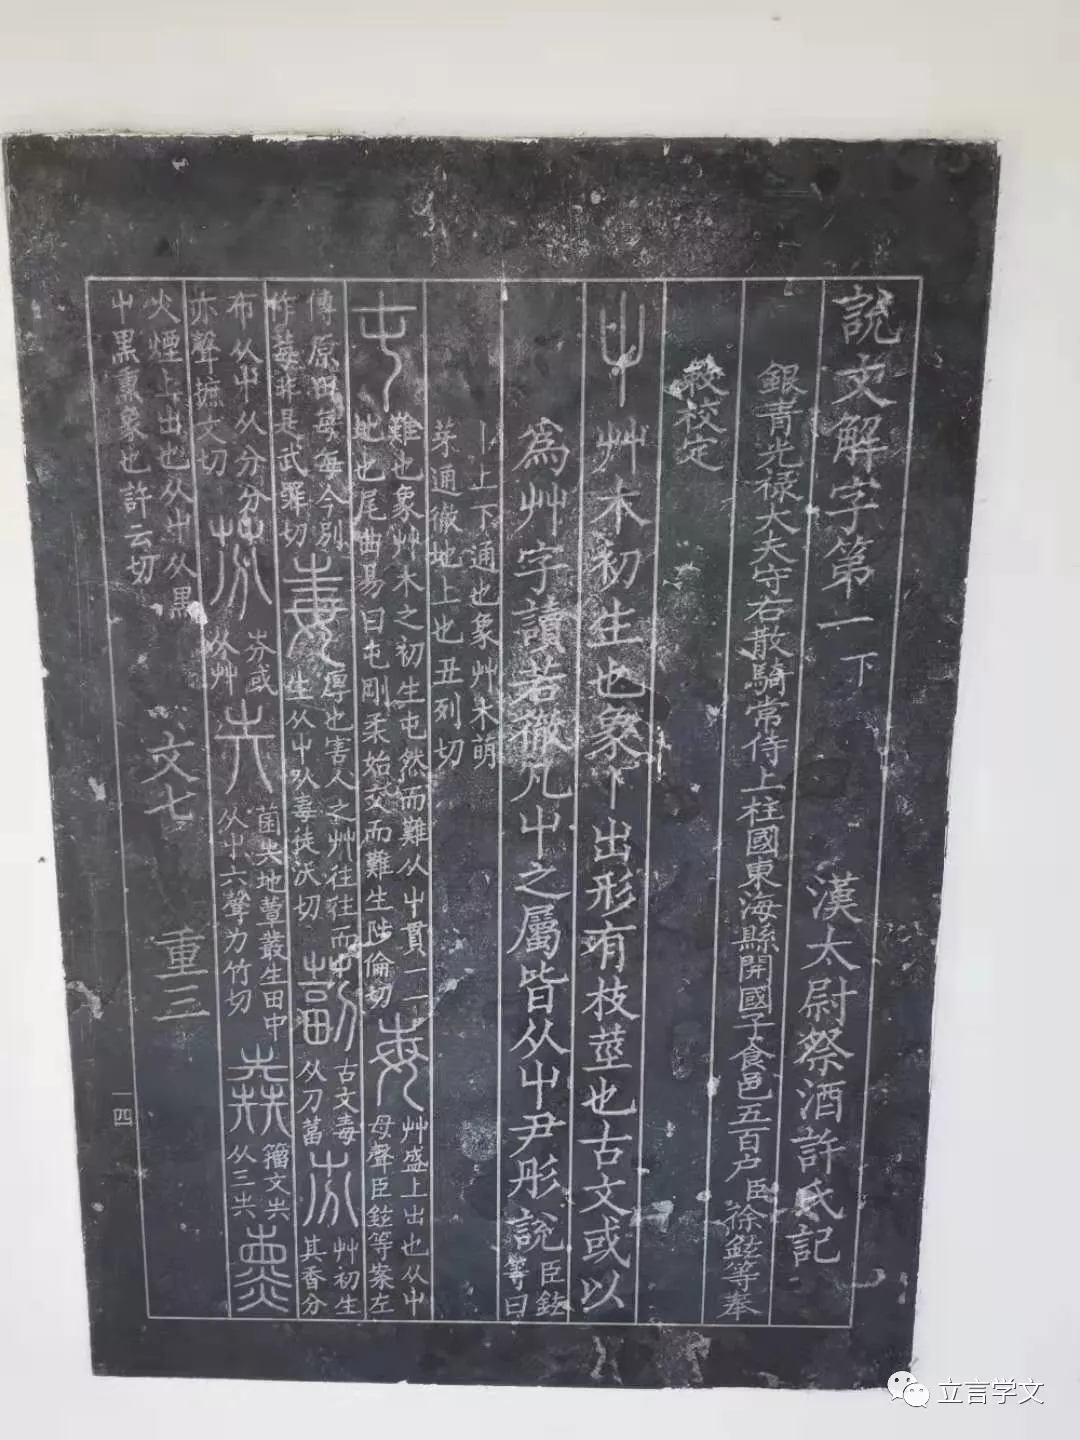 說文解字第一下　漢太尉祭酒許氏記
銀青光祿大夫守右散騎常侍上柱國東海縣開國子食邑五百户臣徐鉉等奉
敕校定
屮艸木初生也象丨出形有枝莖也古文或以
為艸字讀若徹凡屮之屬皆从屮尹彤說臣鉉等曰
丨上下通也象艸木萌
芽通徹地上也丑列切
屯難也象艸木之初生屯然而難从屮貫一一
地也尾曲易曰屯剛柔始交而難生陟倫切
每艸盛上出也从屮
母聲臣鉉等案左
傳原田每每今別
作莓非是武罪切
毒厚也害人之艸往往而
生从屮从毒徒沃切
𦸕古文毒
从刀葍
㞣艸初生
其香分
布从屮从分分
亦聲撫文切
芬㞣或
从艸
𡴆菌𡴆地蕈叢生田中
从屮六聲力竹切
𡴆籀文𡴆
从三𡴆
熏火煙上出也从屮从黑
屮黑熏象也許云切
文七　重三
一四
立言学文